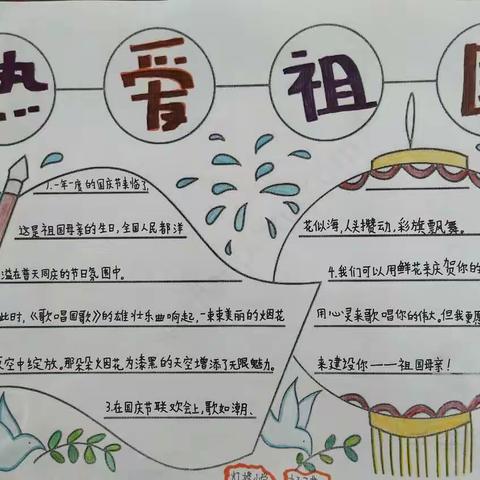 热爱祖国
1.一年一度的国庆节来临了,
这是祖国母亲的生日,全国人民都洋
溢在普天同庆的节日氛围中。
此时,《歌唱国歌》的雄壮乐曲响起,一束束美丽的烟花
空中绽放。那朵朵烟花为漆黑的天空增添了无限魅力。
3.在国庆节联欢会上,歌如潮、
花似海,人头攒动,彩旗飘舞。
4.我们可以用鲜花来庆贺你的
用心灵来歌唱你的伟大。但我更愿
来建设你——祖国母亲!